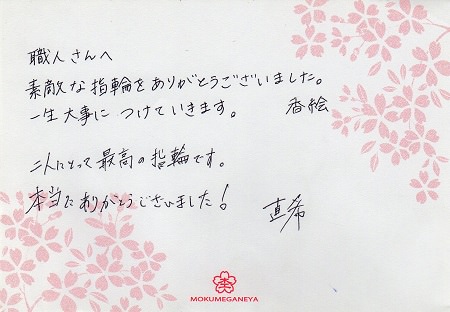 職人さんへ
素敵な指輪をありがとうございました。
一生大事につけていきます。 香絵
二人にとって最高の指輪です。
本当にありがとうございました！ 直希
MOKUMEGANEYA